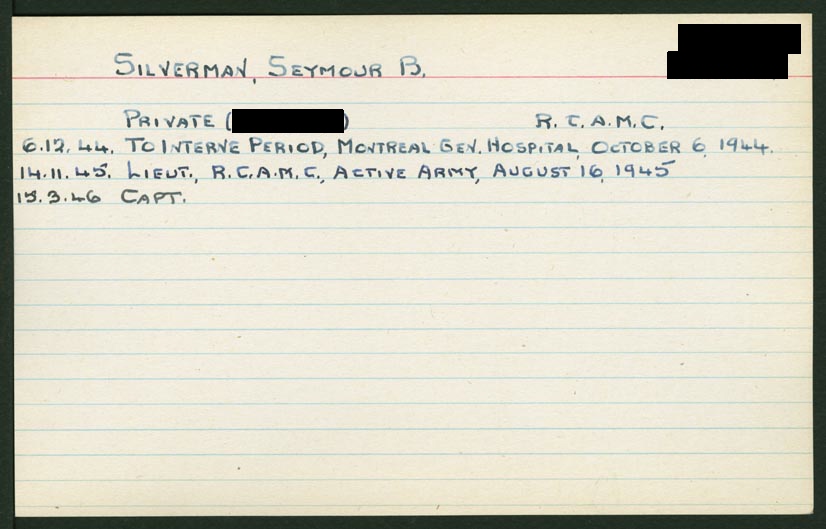 SILVERMAN, SEYMOUR B.
PRIVATE ( ) R.C.A.M.C.
6.12.44. TO INTERNE PERIOD, MONTREAL GEN. HOSPITAL, OCTOBER 6, 1944.
14.11.45. LIEUT., R.C.A.M.C., ACTIVE ARMY, AUGUST 16, 1945
15.3.46 CAPT.